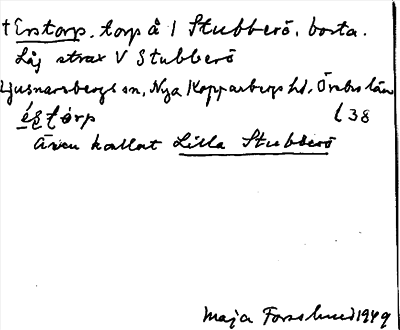 † Erstorp. torp å 1 Stubberö, borta.
Låg strax V Stubberö
Ljusnarsbergs sn, Nya Kopparbergs hd, Örebro län
l 38
Även kallat Lilla Stubberö
Maja Forsslund 1949